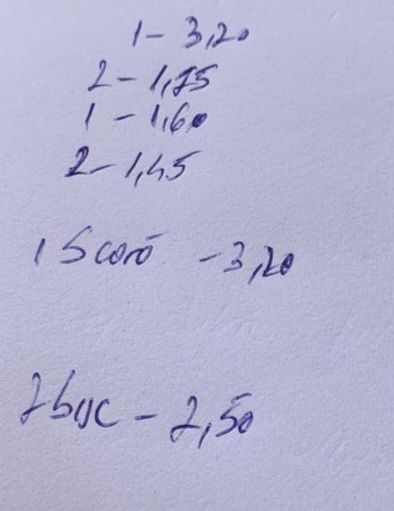 1 - 3,20
2 - 1,75
1 - 1,60
2 - 1,45
1 - 3,20
- 2,50